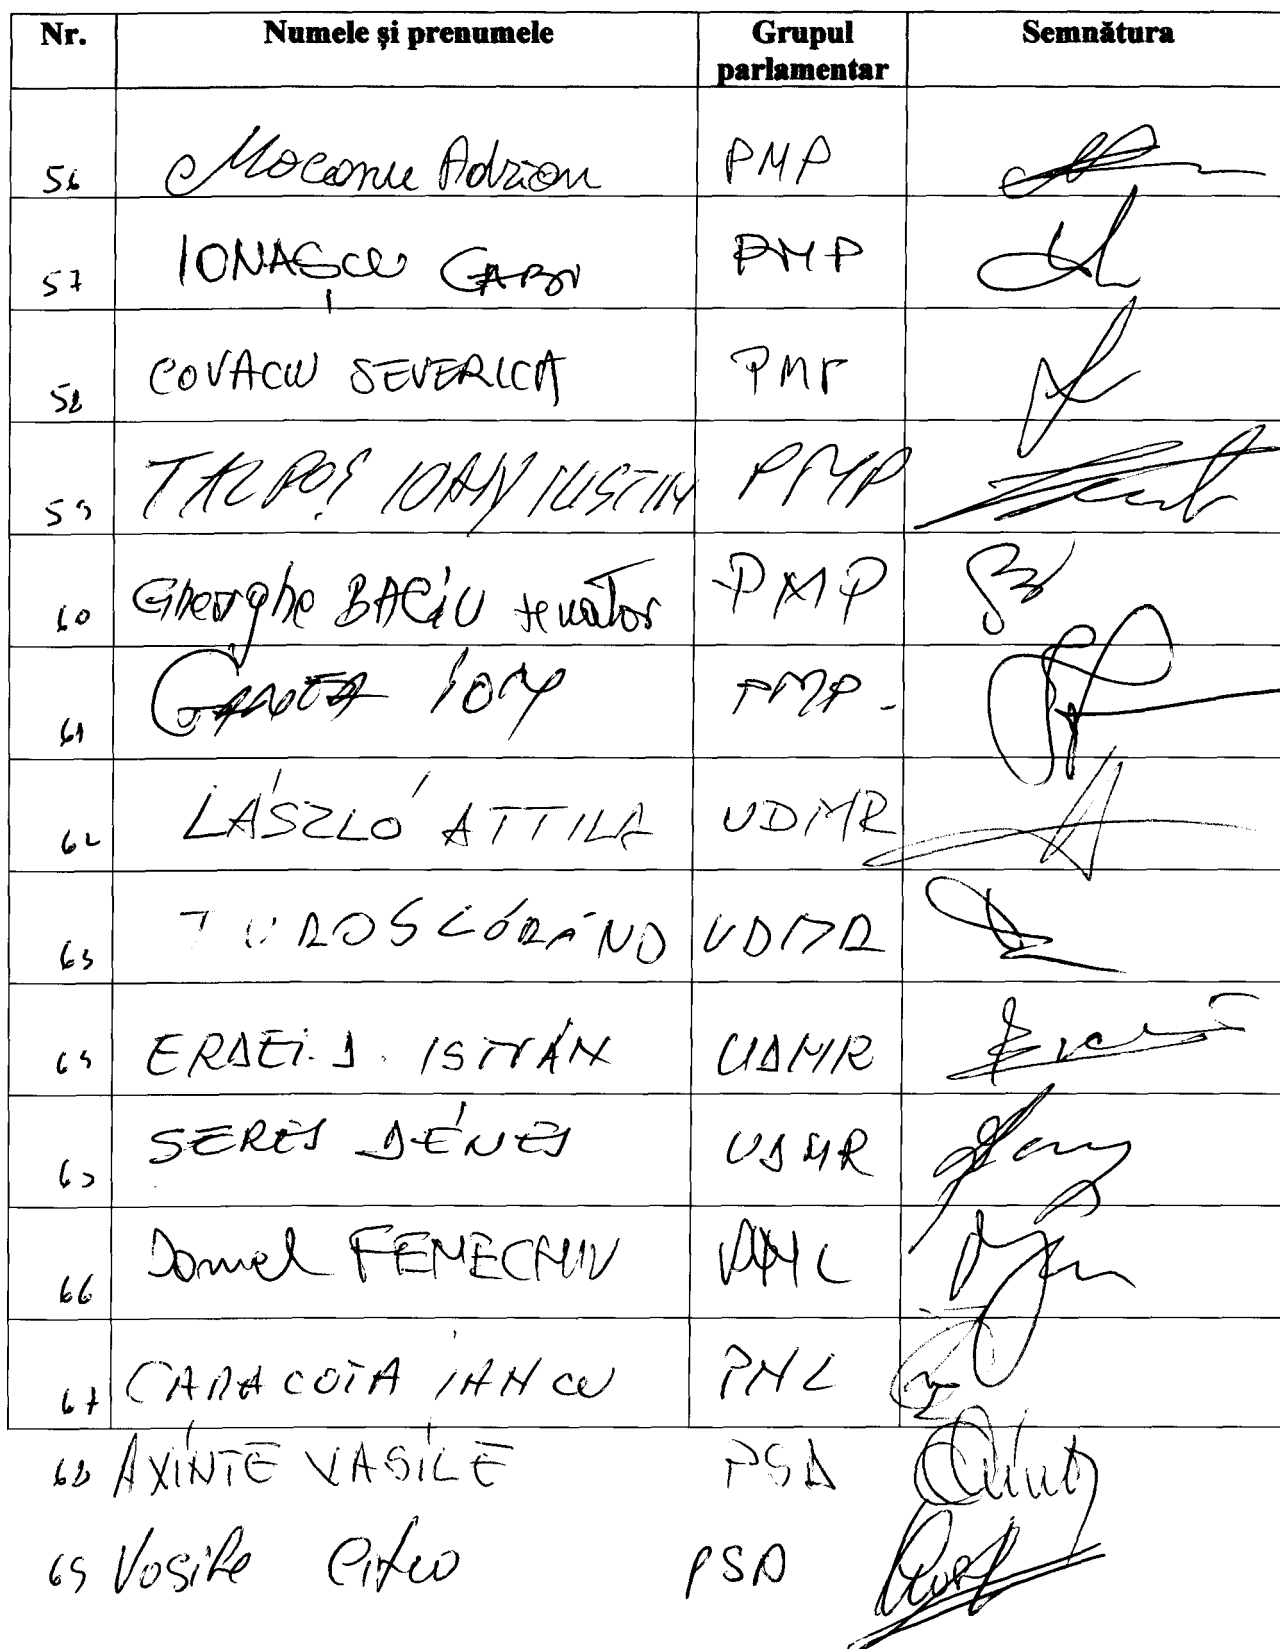 Nr. Numele și prenumele Grupul parlamentar Semnătura
56 Mocanu Adrian PMP
57 IONAȘCU GABI PMP
58 COVACIU SEVERICA PMP
59 TALPOȘ IOAN IUSTIN PMP
60 Gheorghe BACIU senator PMP
61 PMP -
62 LÁSZLÓ ATTILA UDMR
63 TUROS LÓRÁND UDMR
64 ERDEI. D. ISTVÁN UDMR
65 SERES DÉNES UDMR
66 Daniel FENECHIU PNL
67 CARACOTA IANCU PNL
68 AXINTE VASILE PSD
69 Vasile PSD